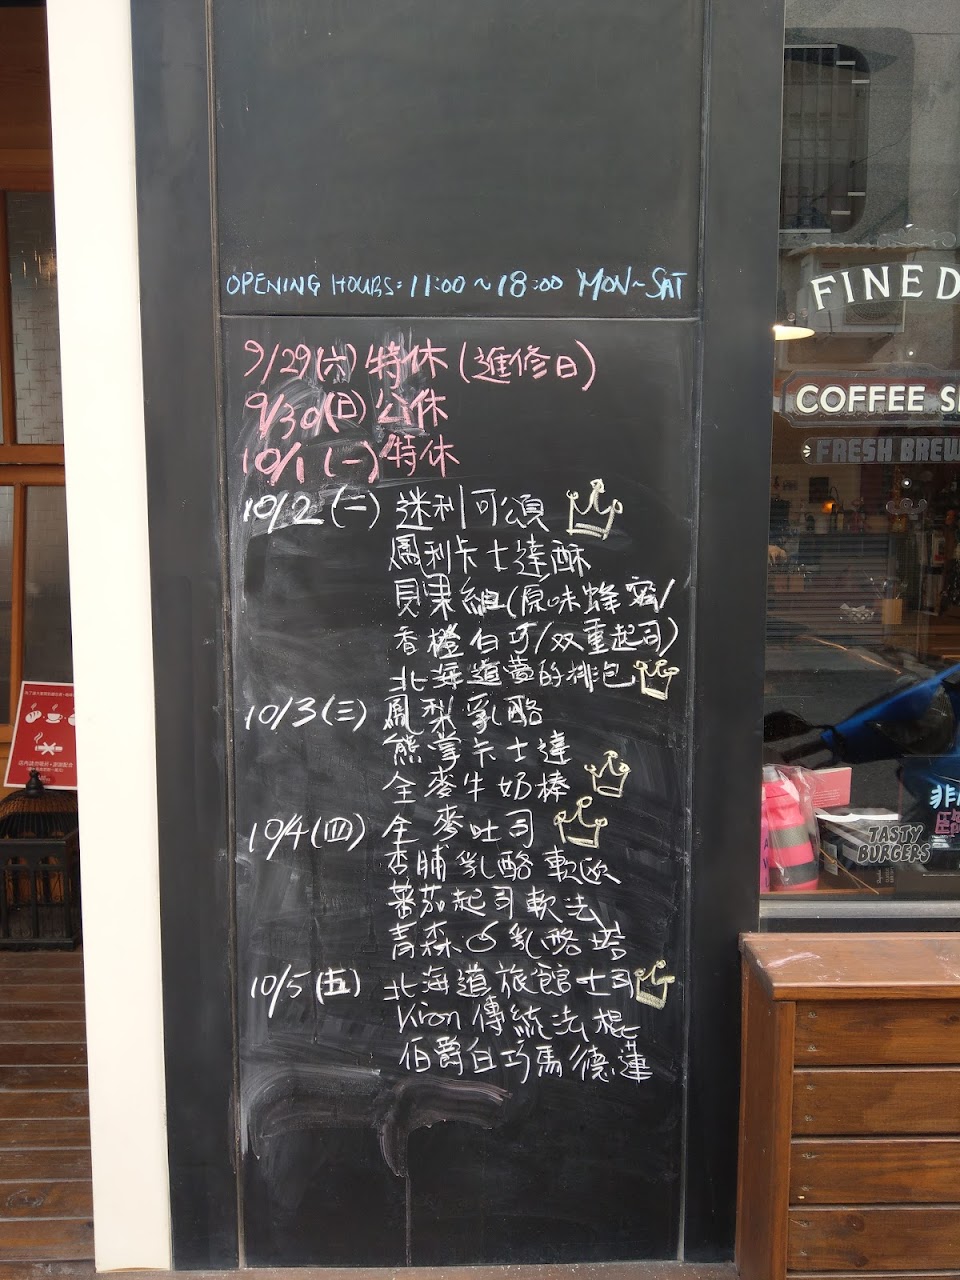 OPENING HOURS: 11:00~18:00 MON~SAT
9/29(六)特休(進修日)
9/30(日)公休
10/1(一)特休
10/2(二)迷利可頌
鳳利卡士達酥
貝果組(原味蜂蜜/
香橙白巧/双重起司)
北海道夢的排泡
10/3(三)鳳梨乳酪
熊掌卡士達
全麥牛奶棒
10/4(四)全麥吐司
杏脯乳酪軟歐
蕃茄起司軟法
青森乳酪塔
10/5(五)北海道旅館士司
Kiron傳統法棍
伯爵白巧馬德蓮
FINE D
COFFEE S
FRESH BREW
TASTY
BURGERS